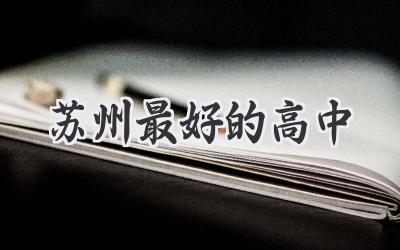 苏州最好的高中